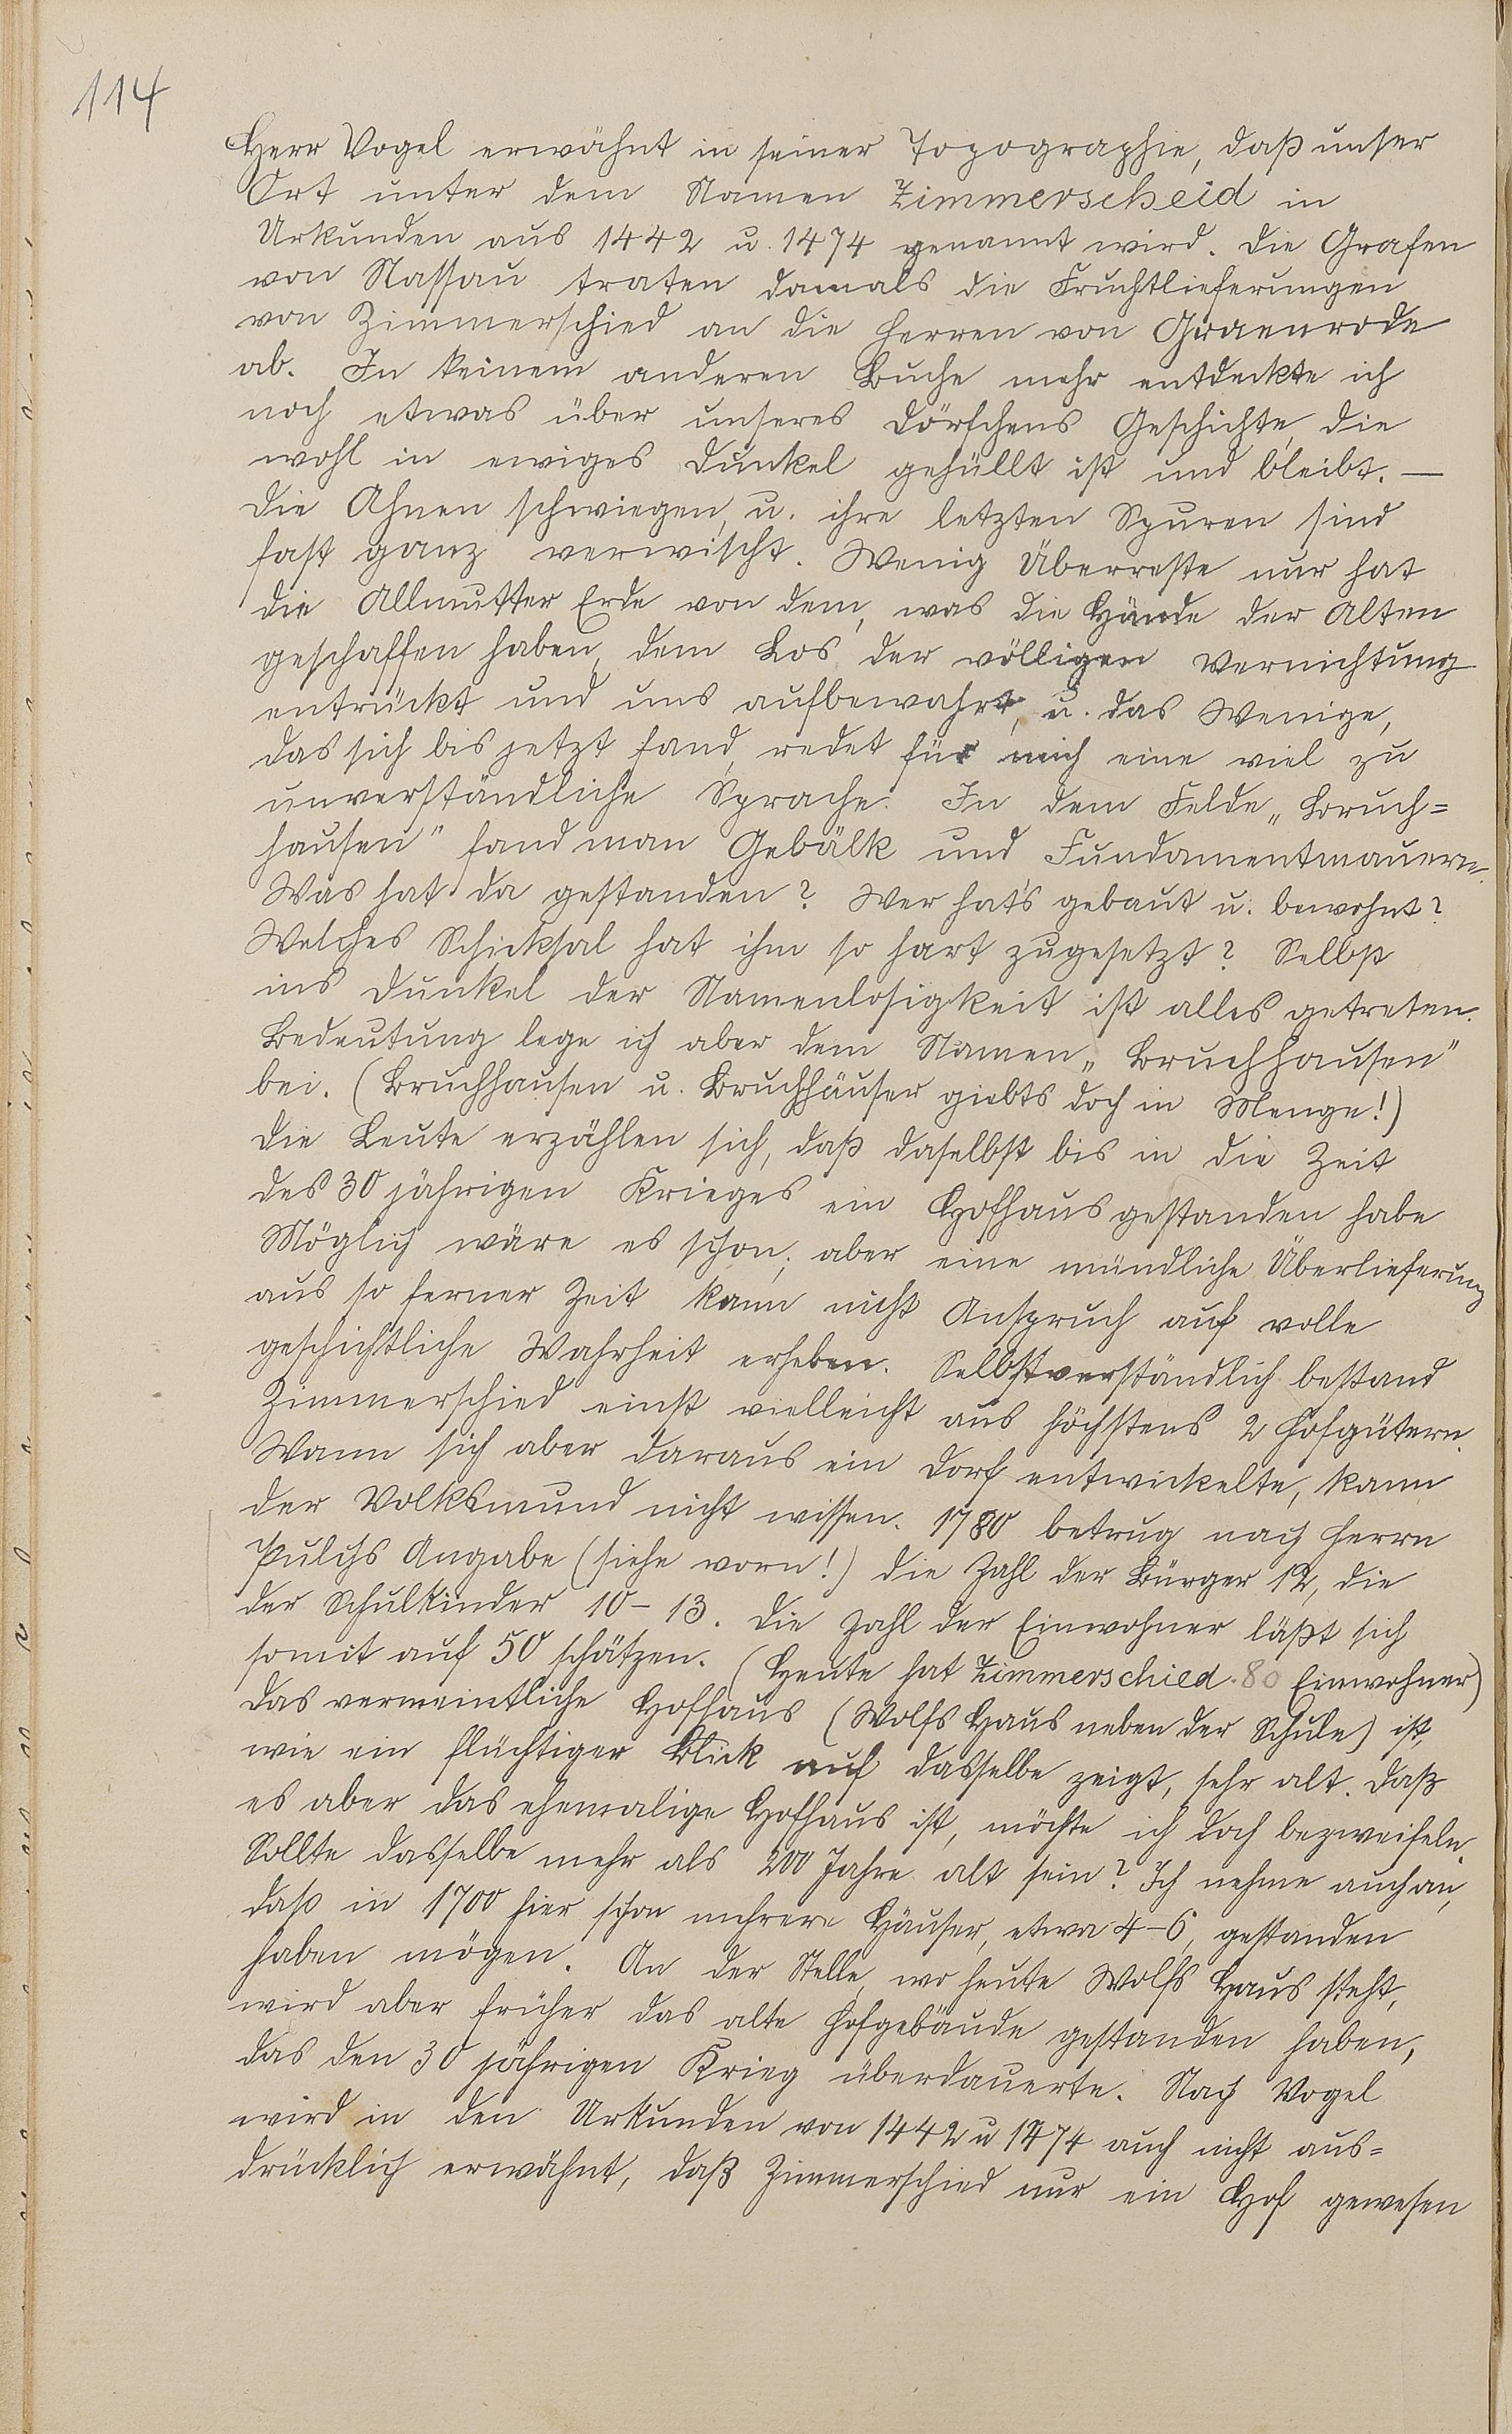 114
Herr Vogel erwähnt in seiner Topographie, daß unser
Ort unter dem Namen Zimmerscheid in
Urkunden aus 1442 u. 1474 genannt wird. Die Grafen
von Nassau traten damals die Fruchtlieferungen
von Zimmerschied an die Herren von
ab. In keinem anderen Buche mehr entdeckte ich
noch etwas über unseres Dörfchens Geschichte, die
wohl in ewiges Dunkel gehüllt ist und bleibt. —
Die Ahnen schwiegen, u. ihre letzten Spuren sind
fast ganz verwischt. Wenig Überreste nur hat
die Allmutter Erde von dem, was die Hände der Alten
geschaffen haben, dem Los der völligen Vernichtung
entrückt und uns aufbewahrt, u. das Wenige,
das sich bis jetzt fand, redet für mich eine viel zu
unverständliche Sprache. In dem Felde „Bruch=
hausen" fand man Gebälk und Fundamentmauern.
Was hat da gestanden? Wer hat's gebaut u. bewohnt?
Welches Schicksal hat ihm so hart zugesetzt? Selbst
ins Dunkel der Namenlosigkeit ist alles getreten.
Bedeutung lege ich aber dem Namen „Bruchhausen"
bei. (Bruchhausen u. Bruchhäuser giebts doch in Menge!)
Die Leute erzählen sich, daß daselbst bis in die Zeit
des 30 jährigen Krieges ein Hofhaus gestanden habe
Möglich wäre es schon; aber eine mündliche Überlieferung
aus so ferner Zeit kann nicht Anspruch auf volle
geschichtliche Wahrheit erheben. Selbstverständlich bestand
Zimmerschied einst vielleicht aus höchstens 2 Hofgütern.
Wann sich aber daraus ein Dorf entwickelte, kann
der Volksmund nicht wissen. 1780 betrug nach Herrn
Pulchs Angabe (siehe vorn!) die Zahl der Bürger 12, die
der Schulkinder 10–13. Die Zahl der Einwohner läßt sich
somit auf 50 schätzen. (Heute hat Zimmerschied 80 Einwohner)
Das vermeintliche Hofhaus (Wolfs Haus neben der Schule) ist,
wie ein flüchtiger Blick auf dasselbe zeigt, sehr alt. Daß
es aber das ehemalige Hofhaus ist, möchte ich doch bezweifeln.
Sollte dasselbe mehr als 200 Jahre alt sein? Ich nehme auch an,
daß in 1700 hier schon mehrere Häuser, etwa 4–6, gestanden
haben mögen. An der Stelle, wo heute Wolfs Haus steht,
wird aber früher das alte Hofgebäude gestanden haben,
das den 30 jährigen Krieg überdauerte. Nach Vogel
wird in den Urkunden von 1442 u 1474 auch nicht aus=
drücklich erwähnt, daß Zimmerschied nur ein Hof gewesen